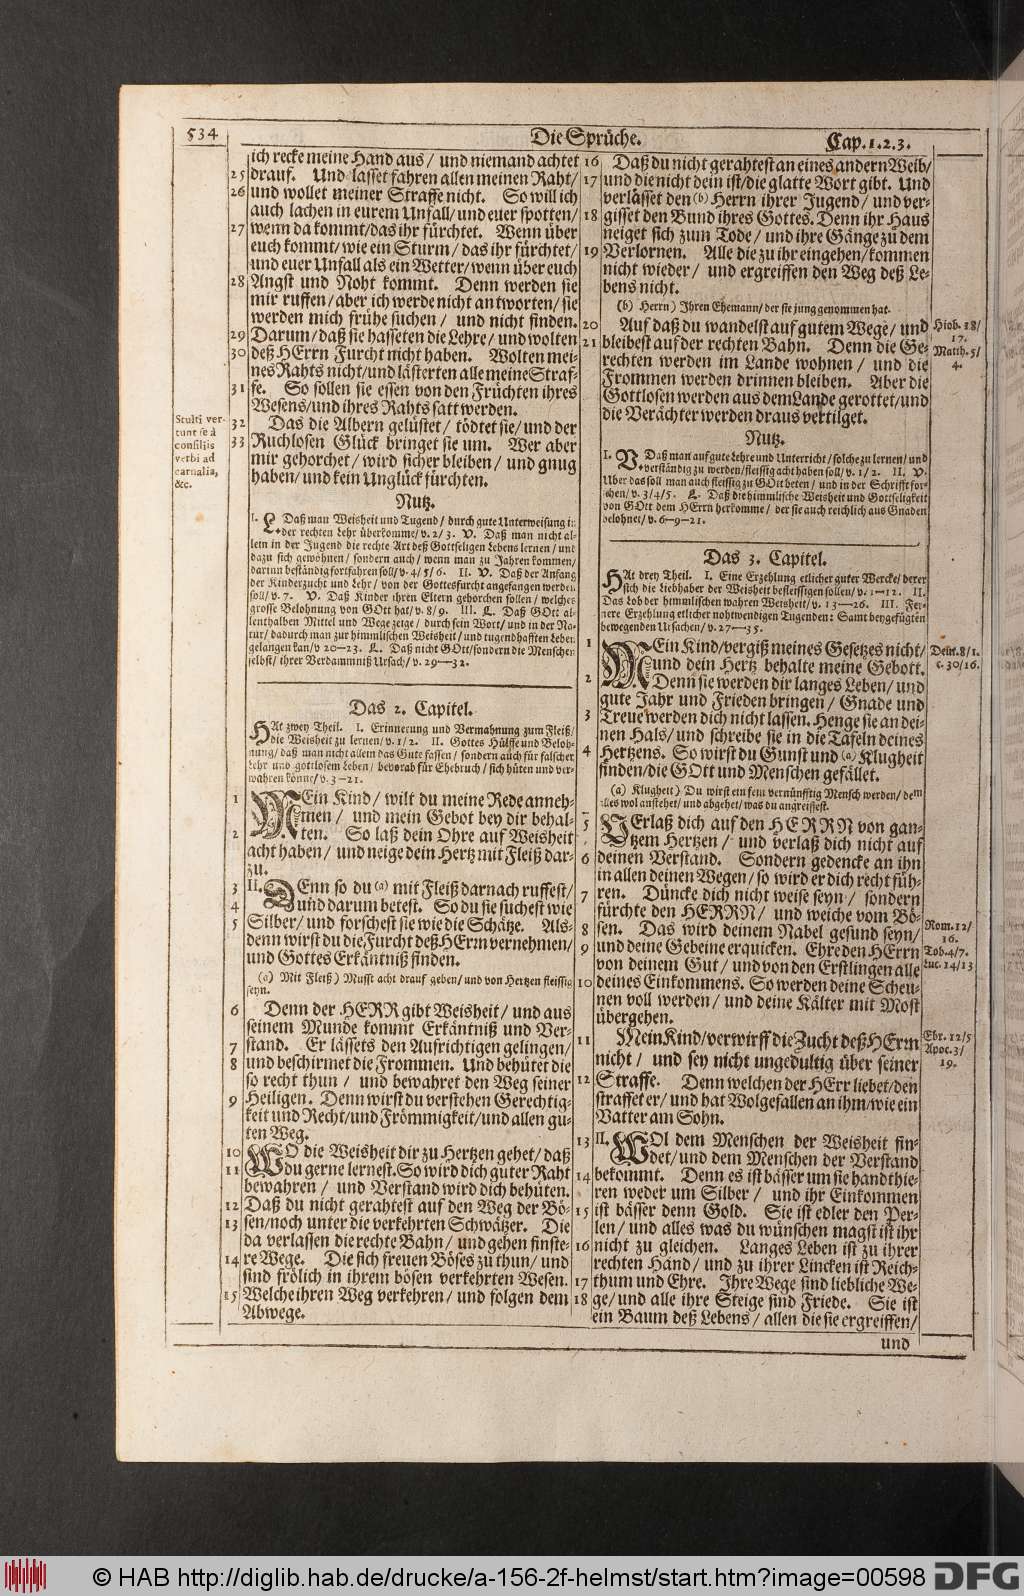 534
Die Sprüche.
Cap. 1. 2. 3.
ich recke meine Hand aus / und niemand achtet
25 drauf. Und lasset fahren allen meinen Raht /
26 und wollet meiner Straffe nicht. So will ich
auch lachen in eurem Unfall / und euer spotten /
27 wenn da kommt / das ihr fürchtet. Wenn über
euch kommt / wie ein Sturm / das ihr fürchtet /
und euer Unfall als ein Wetter / wenn über euch
28 Angst und Noht kommt. Denn werden sie
mir ruffen / aber ich werde nicht antworten / sie
werden mich frühe suchen / und nicht finden.
29 Darum / daß sie hasseten die Lehre / und wolten
30 deß HErrn Furcht nicht haben. Wolten mei-
nes Rahts nicht / und lästerten alle meine Straf-
31 fe. So sollen sie essen von den Früchten ihres
Wesens / und ihres Rahts satt werden.
32 Das die Albern gelüstet / tödtet sie / und der
33 Ruchlosen Glück bringet sie um. Wer aber
mir gehorchet / wird sicher bleiben / und gnug
haben / und kein Unglück fürchten.
Stulti ver-
tunt se à
consiliis
verbi ad
carnalia,
&c.
Nutz.
I. L. Daß man Weisheit und Tugend / durch gute Unterweisung in
der rechten Lehr überkomme / v. 2 / 3. V. Daß man nicht al-
lein in der Jugend die rechte Art deß Gottseligen Lebens lernen / und
dazu sich gewöhnen / sondern auch / wenn man zu Jahren kommen /
darinn beständig fortfahren soll / v. 4 / 5 / 6. II. V. Daß der Anfang
der Kinderzucht und Lehr / von der Gottesfurcht angefangen werden
soll / v. 7. V. Daß Kinder ihren Eltern gehorchen sollen / welches
grosse Belohnung von GOtt hat / v. 8 / 9. III. L. Daß GOtt al-
lenthalben Mittel und Wege zeige / durch sein Wort / und in der Na-
tur / dadurch man zur himmlischen Weisheit / und tugendhafften Leben
gelangen kan / v 20–23. L. Daß nicht GOtt / sondern die Menschen
selbst / ihrer Verdammniß Ursach / v. 29–32.
Das 2. Capitel.
HAt zwey Theil. I. Erinnerung und Vermahnung zum Fleiß /
die Weisheit zu lernen / v. 1 / 2. II. Gottes Hülffe und Beloh-
nung / daß man nicht allein das Gute fassen / sondern auch für falscher
Lehr und gottlosem Leben / bevorab für Ehebruch / sich hüten und ver-
wahren könne / v. 3–21.
1 MEin Kind / wilt du meine Rede anneh-
men / und mein Gebot bey dir behal-
2 ten. So laß dein Ohre auf Weisheit
acht haben / und neige dein Hertz mit Fleiß dar-
zu.
3 II. DEnn so du (a) mit Fleiß darnach ruffest /
4 und darum betest. So du sie suchest wie
5 Silber / und forschest sie wie die Schätze. Als-
denn wirst du die Furcht deß HErrn vernehmen /
und Gottes Erkäntniß finden.
(a) Mit Fleiß ) Musst acht drauf geben / und von Hertzen fleissig
seyn.
6 Denn der HERR gibt Weisheit / und aus
seinem Munde kommt Erkäntniß und Ver-
7 stand. Er lässets den Aufrichtigen gelingen /
8 und beschirmet die Frommen. Und behütet die
so recht thun / und bewahret den Weg seiner
9 Heiligen. Denn wirst du verstehen Gerechtig-
keit und Recht / und Frömmigkeit / und allen gu-
ten Weg.
10 WO die Weisheit dir zu Hertzen gehet / daß
11 du gerne lernest. So wird dich guter Raht
bewahren / und Verstand wird dich behüten.
12 Daß du nicht gerahtest auf den Weg der Bö-
13 sen / noch unter die verkehrten Schwätzer. Die
da verlassen die rechte Bahn / und gehen finste-
14 re Wege. Die sich freuen Böses zu thun / und
sind frölich in ihrem bösen verkehrten Wesen.
15 Welche ihren Weg verkehren / und folgen dem
Abwege.
16 Daß du nicht gerahtest an eines andern Weib /
17 und die nicht dein ist / die glatte Wort gibt. Und
verlässet den (b) Herrn ihrer Jugend / und ver-
18 gisset den Bund ihres Gottes. Denn ihr Haus
neiget sich zum Tode / und ihre Gänge zu dem
19 Verlornen. Alle die zu ihr eingehen / kommen
nicht wieder / und ergreiffen den Weg deß Le-
bens nicht.
(b) Herrn ) Ihren Ehemann / der sie jung genommen hat.
20 Auf daß du wandelst auf gutem Wege / und
21 bleibest auf der rechten Bahn. Denn die Ge-
rechten werden im Lande wohnen / und die
Frommen werden drinnen bleiben. Aber die
Gottlosen werden aus dem Lande gerottet / und
die Verächter werden draus vertilget.
Hiob. 18/
17.
Matth. 5/
4.
Nutz.
I. V. Daß man auf gute Lehre und Unterricht / solche zu lernen / und
verständig zu werden / fleissig acht haben soll / v. 1 / 2. II. V.
Uber das soll man auch fleissig zu GOtt beten / und in der Schrifft for-
schen / v. 3 / 4 / 5. L. Daß die himmlische Weisheit und Gottseligkeit
von GOtt dem HErrn herkomme / der sie auch reichlich aus Gnaden
belohnet / v. 6–9–21.
Das 3. Capitel.
HAt drey Theil. I. Eine Erzehlung etlicher guter Wercke / derer
sich die Liebhaber der Weisheit befleissigen sollen / v. 1–12. II.
Das Lob der himmlischen wahren Weisheit / v. 13–26. III. Fer-
nere Erzehlung etlicher nohtwendigen Tugenden: Samt beygefügten
bewegenden Ursachen / v. 27–35.
1 MEin Kind / vergiß meines Gesetzes nicht /
und dein Hertz behalte meine Gebott.
2 Denn sie werden dir langes Leben / und
gute Jahr und Frieden bringen / Gnade und
3 Treue werden dich nicht lassen. Henge sie an dei-
nen Hals / und schreibe sie in die Tafeln deines
4 Hertzens. So wirst du Gunst und (a) Klugheit
finden / die GOtt und Menschen gefället.
Deut. 8/1.
c. 30/16.
(a) Klugheit ) Du wirst ein fein vernünfftig Mensch werden / dem
alles wol anstehet / und abgehet / was du angreiffest.
5 VErlaß dich auf den HERRN von gan-
tzem Hertzen / und verlaß dich nicht auf
6 deinen Verstand. Sondern gedencke an ihn
in allen deinen Wegen / so wird er dich recht füh-
7 ren. Düncke dich nicht weise seyn / sondern
fürchte den HERRN / und weiche vom Bö-
8 sen. Das wird deinem Nabel gesund seyn /
9 und deine Gebeine erquicken. Ehre den HErrn
von deinem Gut / und von den Erstlingen alle
10 deines Einkommens. So werden deine Scheu-
nen voll werden / und deine Kälter mit Most
übergehen.
Rom. 12/
16.
Tob. 4/7.
Luc. 14/13
11 Mein Kind / verwirff die Zucht deß HErrn
nicht / und sey nicht ungedultig über seiner
12 Straffe. Denn welchen der HErr liebet / den
straffet er / und hat Wolgefallen an ihm / wie ein
Vatter am Sohn.
Ebr. 12/5
Apoc. 3/
19.
13 II. WOl dem Menschen der Weisheit fin-
det / und dem Menschen der Verstand
14 bekommt. Denn es ist bässer um sie handthie-
ren weder um Silber / und ihr Einkommen
15 ist bässer denn Gold. Sie ist edler den Per-
len / und alles was du wünschen magst ist ihr
16 nicht zu gleichen. Langes Leben ist zu ihrer
rechten Hand / und zu ihrer Lincken ist Reich-
17 thum und Ehre. Ihre Wege sind liebliche We-
18 ge / und alle ihre Steige sind Friede. Sie ist
ein Baum deß Lebens / allen die sie ergreiffen /
und
© HAB http://diglib.hab.de/drucke/a-156-2f-helmst/start.htm?image=00598
DFG